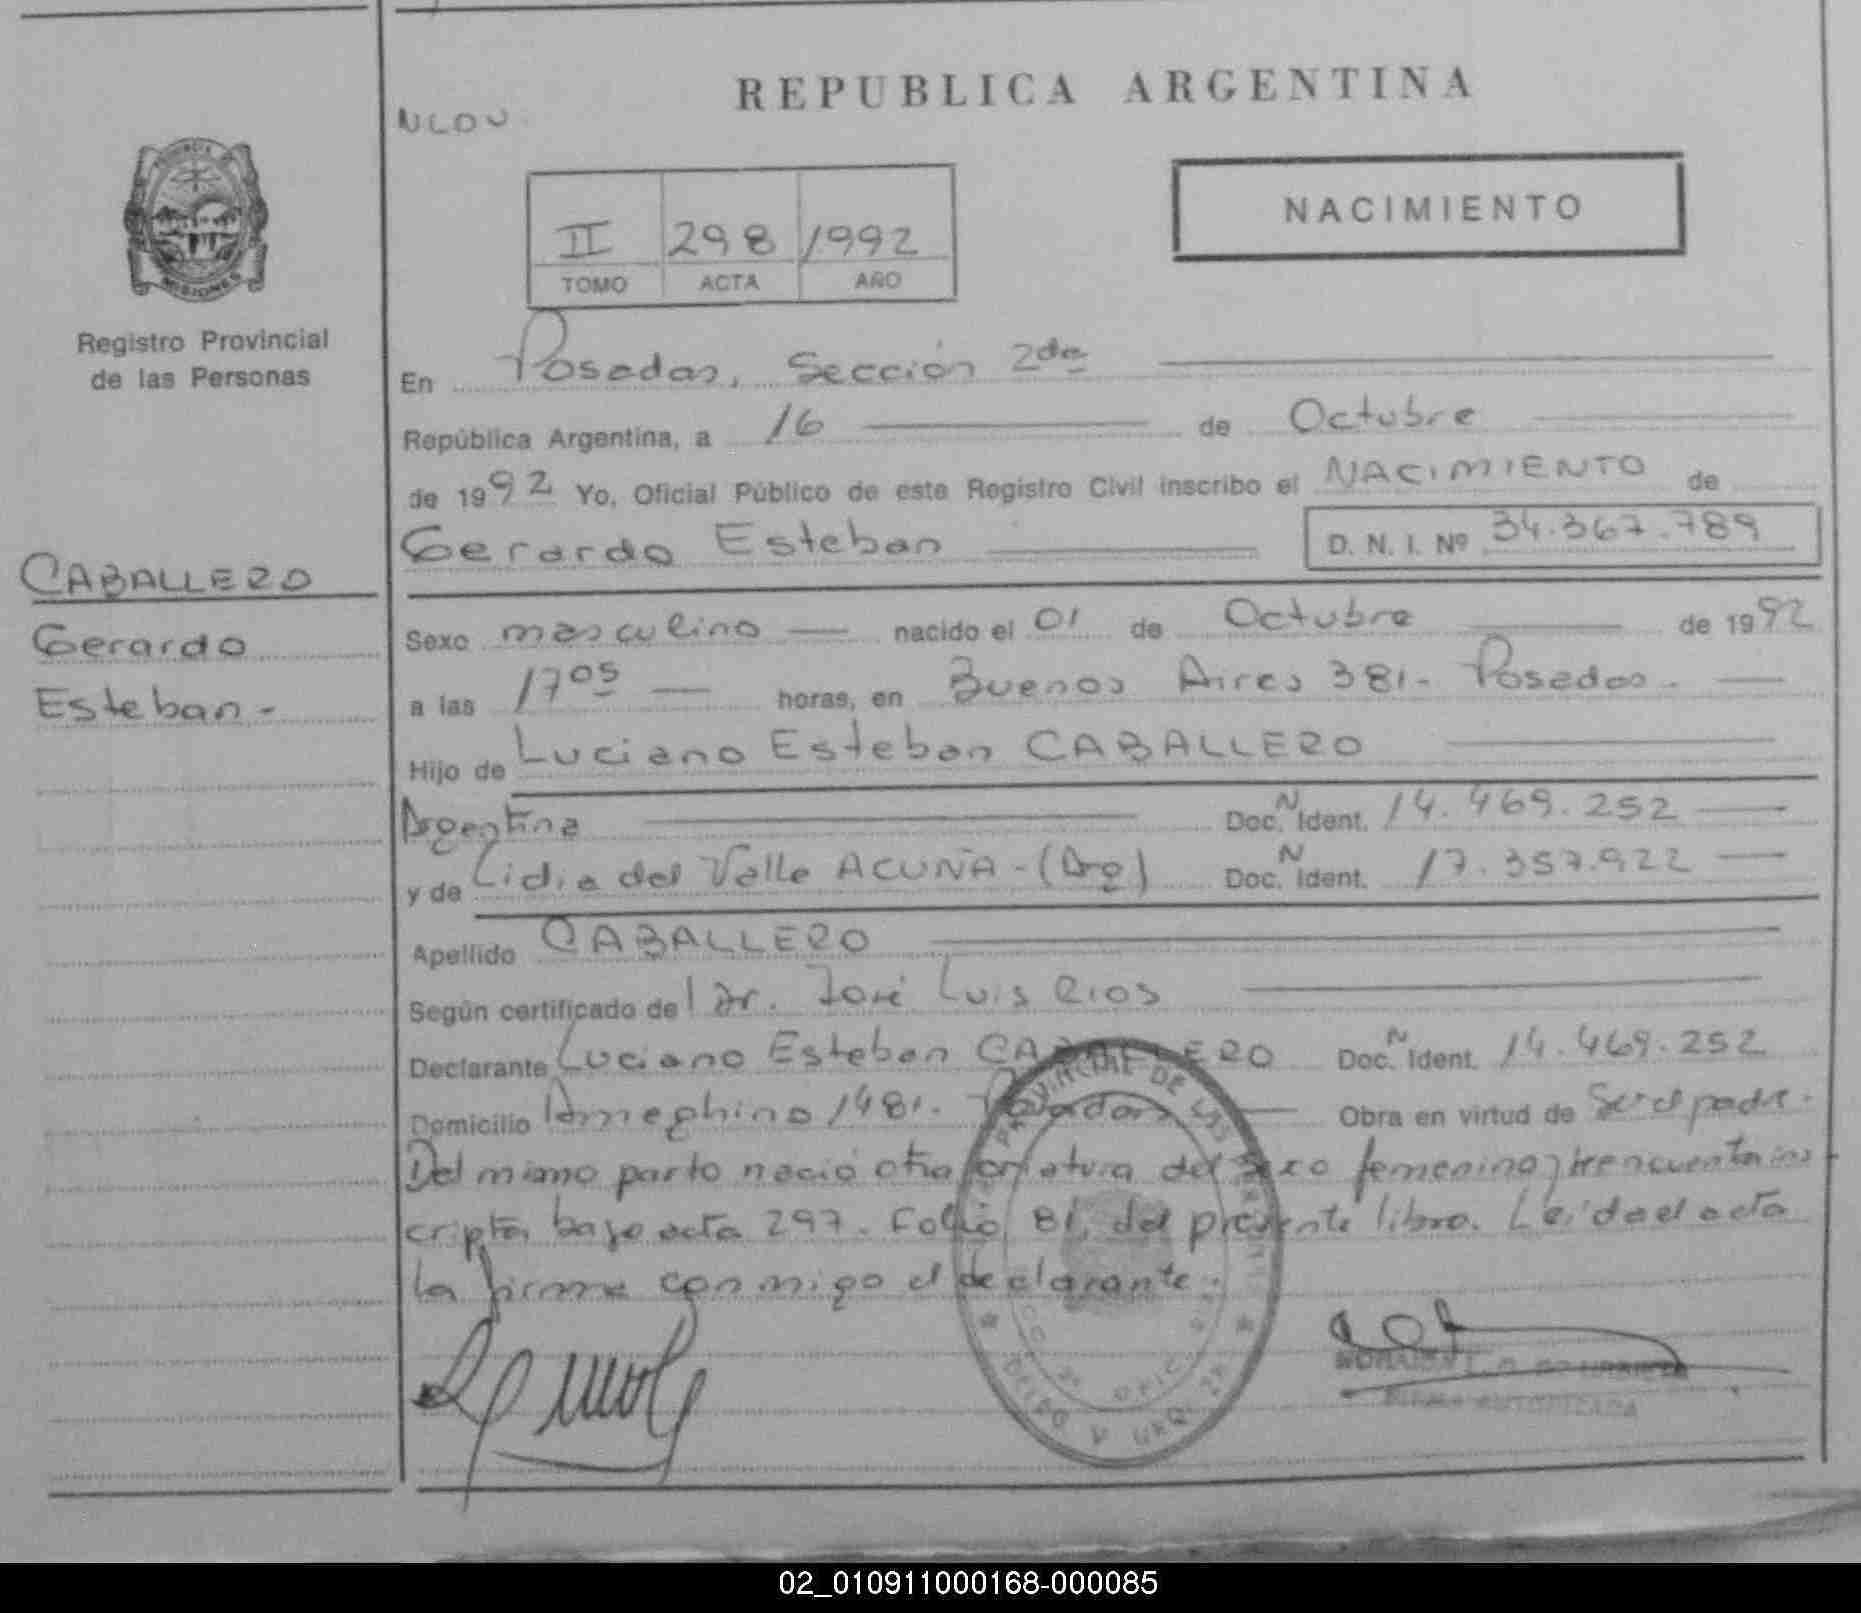 REPUBLICA ARGENTINA
NACIMIENTO
II 298 1992
TOMO ACTA AÑO
PROVINCIA DE MISIONES
Registro Provincial
de las Personas
CABALLERO
Gerardo
Esteban -
En Posadas, Sección 2da
República Argentina, a 16 de Octubre
de 1992 Yo, Oficial Público de este Registro Civil inscribo el NACIMIENTO de
Gerardo Esteban D. N. I. Nº 34.367.789
Sexo masculino nacido el 01 de Octubre de 1992
a las 17 05 horas, en Buenos Aires 381 - Posadas -
Hijo de Luciano Esteban CABALLERO
Argentina Doc. N Ident. 14.469.252
y de Lidia del Valle ACUÑA - (Arg) Doc. N Ident. 17.357.922
Apellido CABALLERO
Según certificado del Dr. José Luis Rios
Declarante Luciano Esteban CABALLERO Doc. N Ident. 14.469.252
Domicilio Ameghino 1481 - Posadas Obra en virtud de Ser el padre.
Del mismo parto nació otra criatura del sexo femenino y se encuentra ins
cripta bajo acta 297. Folio 81, del presente libro. Leída el acta
la firma conmigo el declarante.
PROVINCIAL DE LAS
FIRMA AUTORIZADA
02_010911000168-000085